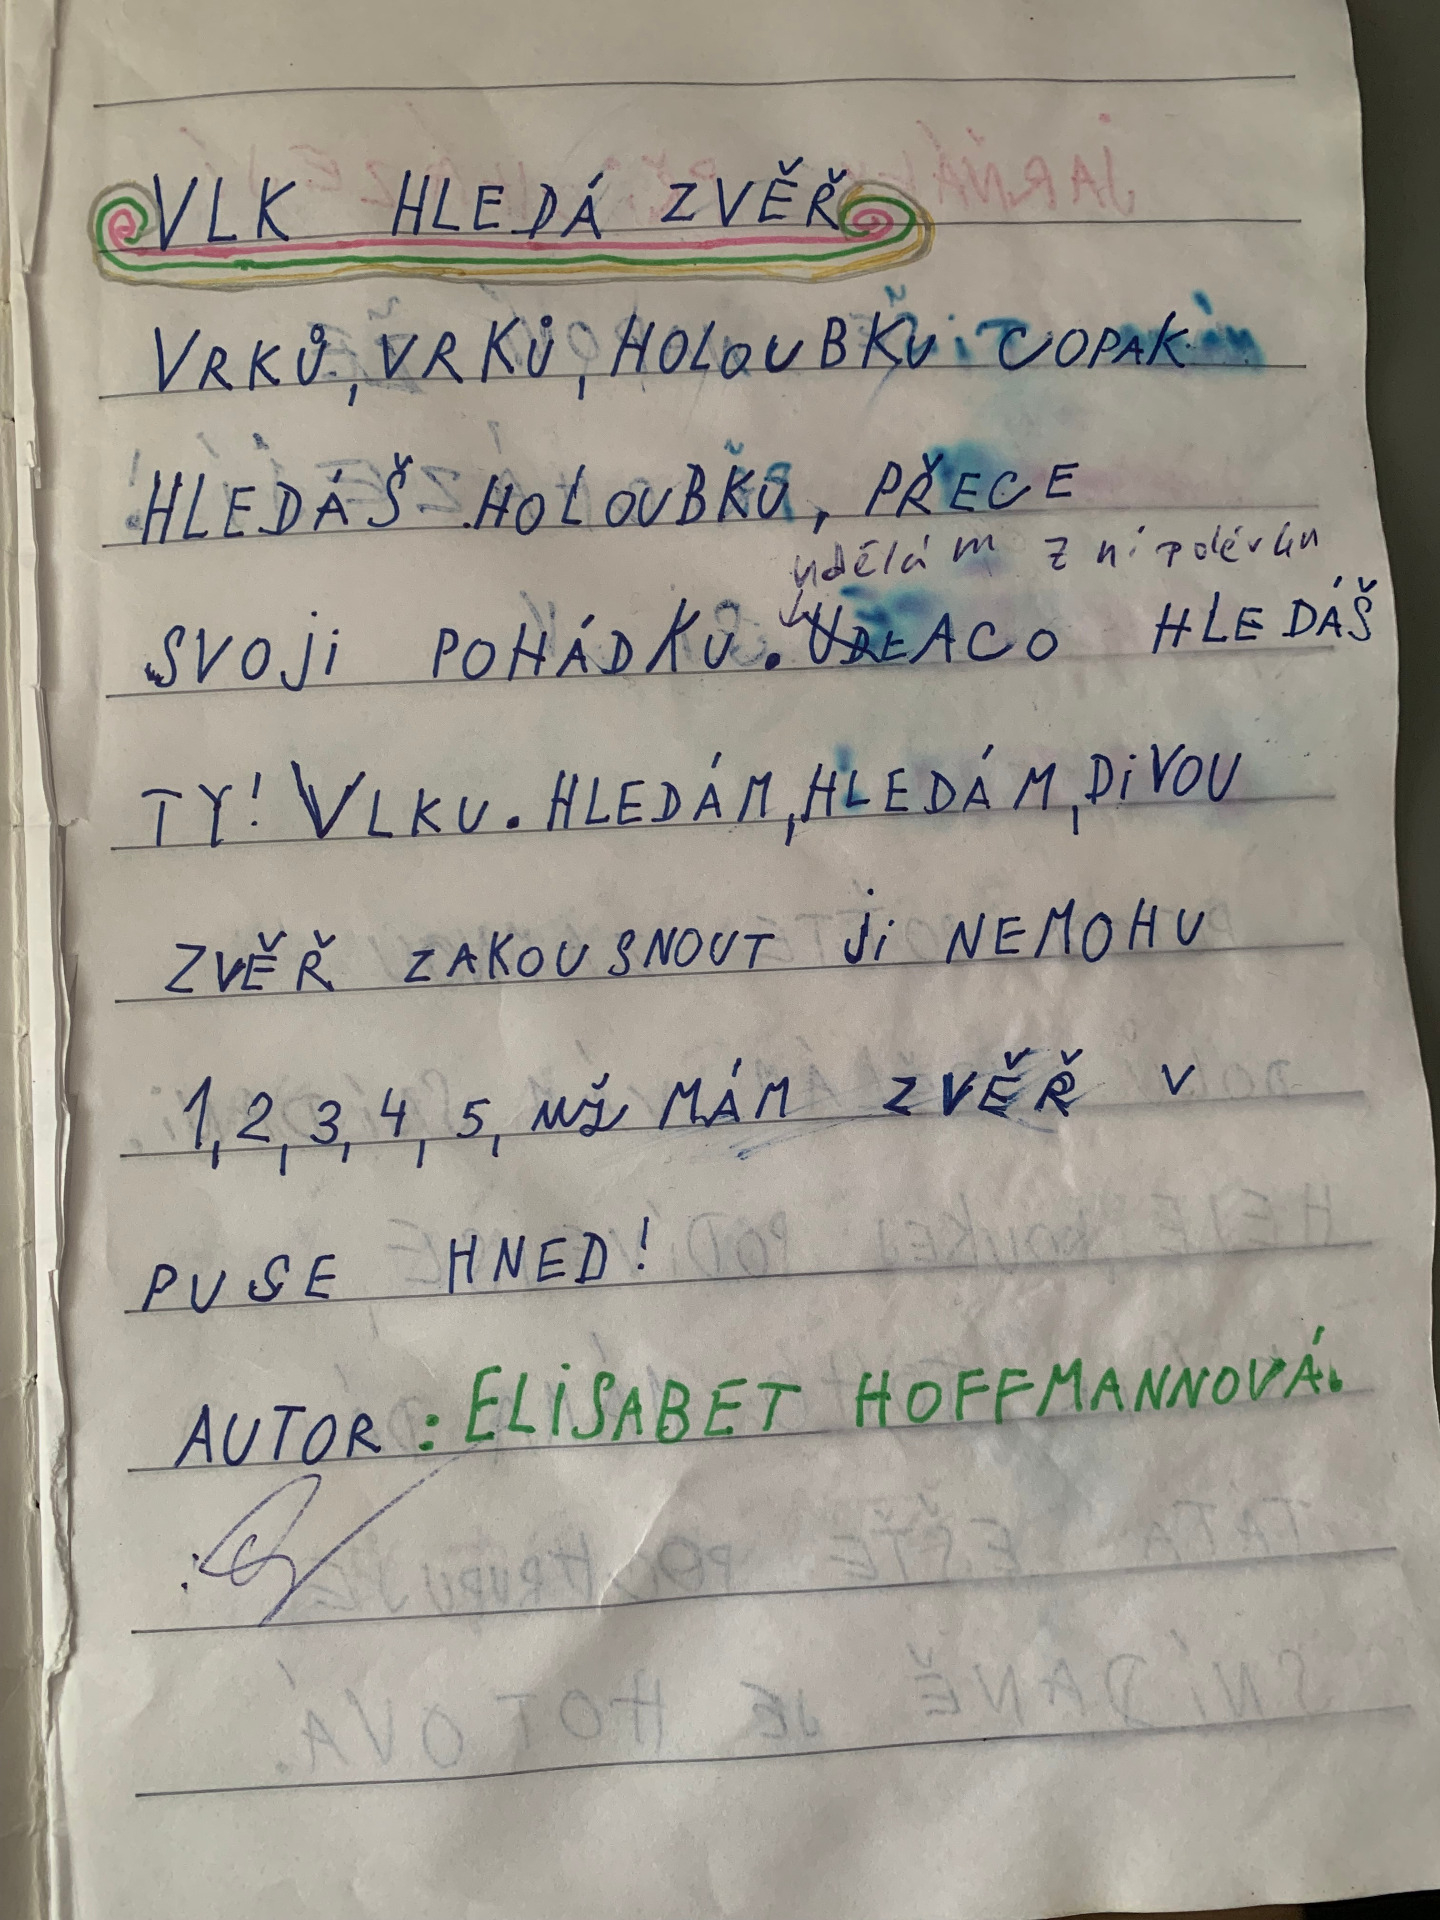 VLK HLEDÁ ZVĚŘ
VRKŮ, VRKŮ, HOLOUBKU COPAK
HLEDÁŠ HOLOUBKU, PŘECE
udělám z ní polévku
SVOJi POHÁDKU. A CO HLEDÁŠ
TY! VLKU. HLEDÁM, HLEDÁM, DiVOU
ZVĚŘ ZAKOUSNOUT Ji NEMOHU
1, 2, 3, 4, 5, už MÁM ZVĚŘ V
PUSE HNED!
AUTOR: ELiSABET HOFFMANNOVÁ.